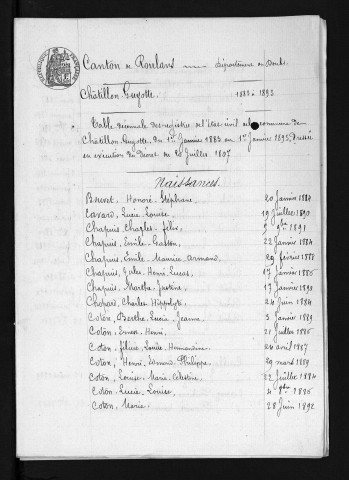 Canton de Roulans Département du Doubs
Châtillon-Guyotte. 1883 à 1893
Table décennale des registres de l'état civil de la commune de
Châtillon-Guyotte, du 1er Janvier 1883 au 1er Janvier 1893, Dressée
en exécution du décret du 20 Juillet 1807
Naissances.
Bouvet, Honoré Stéphane 20 Janvier 1884
Cavard, Lucie Louise 19 Juillet 1890
Chapuis, Charles Félix 9bre 1891
Chapuis, Emile Gaston 22 Janvier 1884
Chapuis, Emile Maurice Armand 29 février 1888
Chapuis, Jules Henri Lucas 17 Janvier 1886
Chapuis, Marthe Justine 17 Janvier 1893
Chopard, Charles Hippolyte 24 Juin 1884
Coton, Berthe Lucie Jeanne 3 Janvier 1889
Coton, Ernest Henri, 21 Juillet 1886
Coton, Louise 24 avril 1887
Coton, Henri Philippe 29 mars 1889
Coton, Louise Marie Célestine 22 Juillet 1884
Coton, Lucie Louise, 4 1886
Coton, Marie, 28 Juin 1892